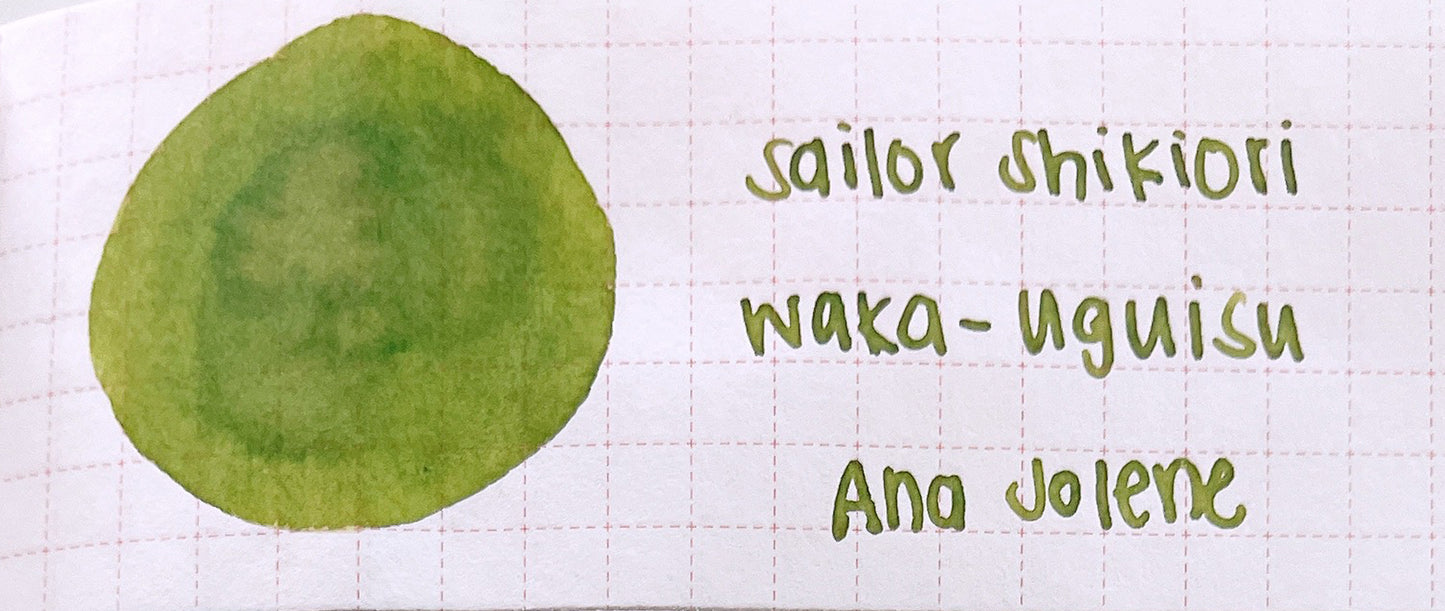 sailor shikiori
waka-uguisu
Ana Jolene